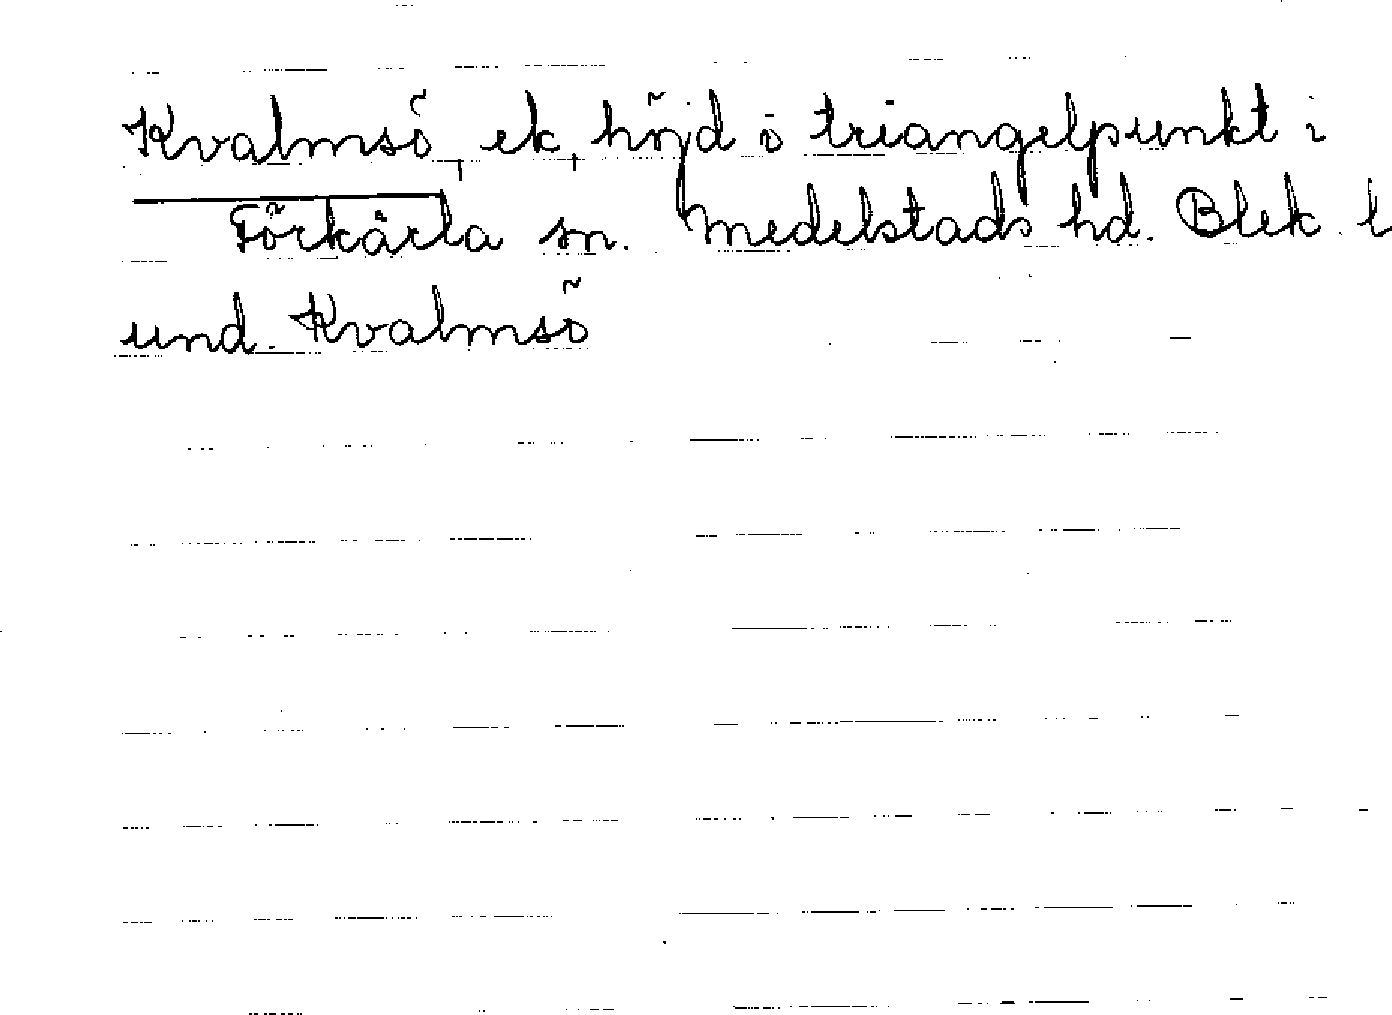 Kvalmsö, ek, höjd o triangelpunkt i
Förkärla sn. Medelstads hd. Blek. l
und. Kvalmsö